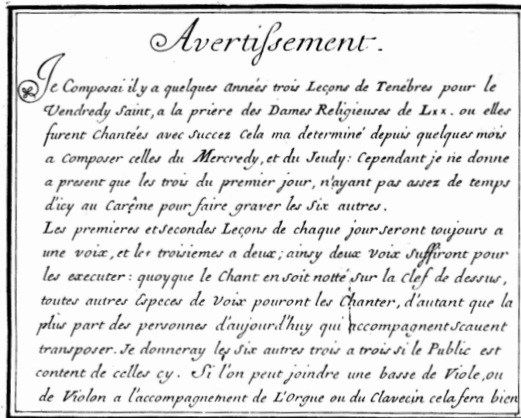 Avertissement.
Je Composai il y a quelques années trois Leçons de Tenébres pour le
Vendredy Saint, a la prière des Dames Religieuses de Lxx. ou elles
furent Chantées avec succez Cela ma determiné depuis quelques mois
a Composer celles du Mercredy, et du Jeudy: Cependant je ne donne
a present que les trois du premier jour, n'ayant pas assez de temps
d'icy au Carême pour faire graver les Six autres.
Les premieres et secondes Leçons de chaque jour seront toujours a
une voix, et les troisiemes a deux; ainsy deux Voix Suffiront pour
les executer: quoyque le Chant en soit notté sur la Clef de dessus,
toutes autres Especes de Voix pouront les Chanter, d'autant que la
plus part des personnes d'aujourd'huy qui accompagnent scauent
transposer. Je donneray les Six autres trois a trois si le Public est
content de celles cy. Si l'on peut joindre une basse de Viole, ou
de Violon a l'accompagnement de L'Orgue ou du Clavecin cela fera bien